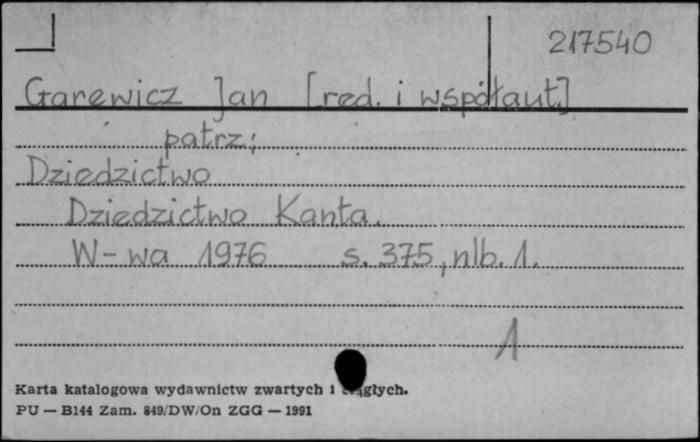 217540
Garewicz Jan [red. i współaut.]
patrz:
Dziedzictwo
Dziedzictwo Kanta.
W-wa 1976 s. 375, nlb. 1.
1
Karta katalogowa wydawnictw zwartych i ciągłych.
PU — B144 Zam. 849/DW/On ZGG — 1991